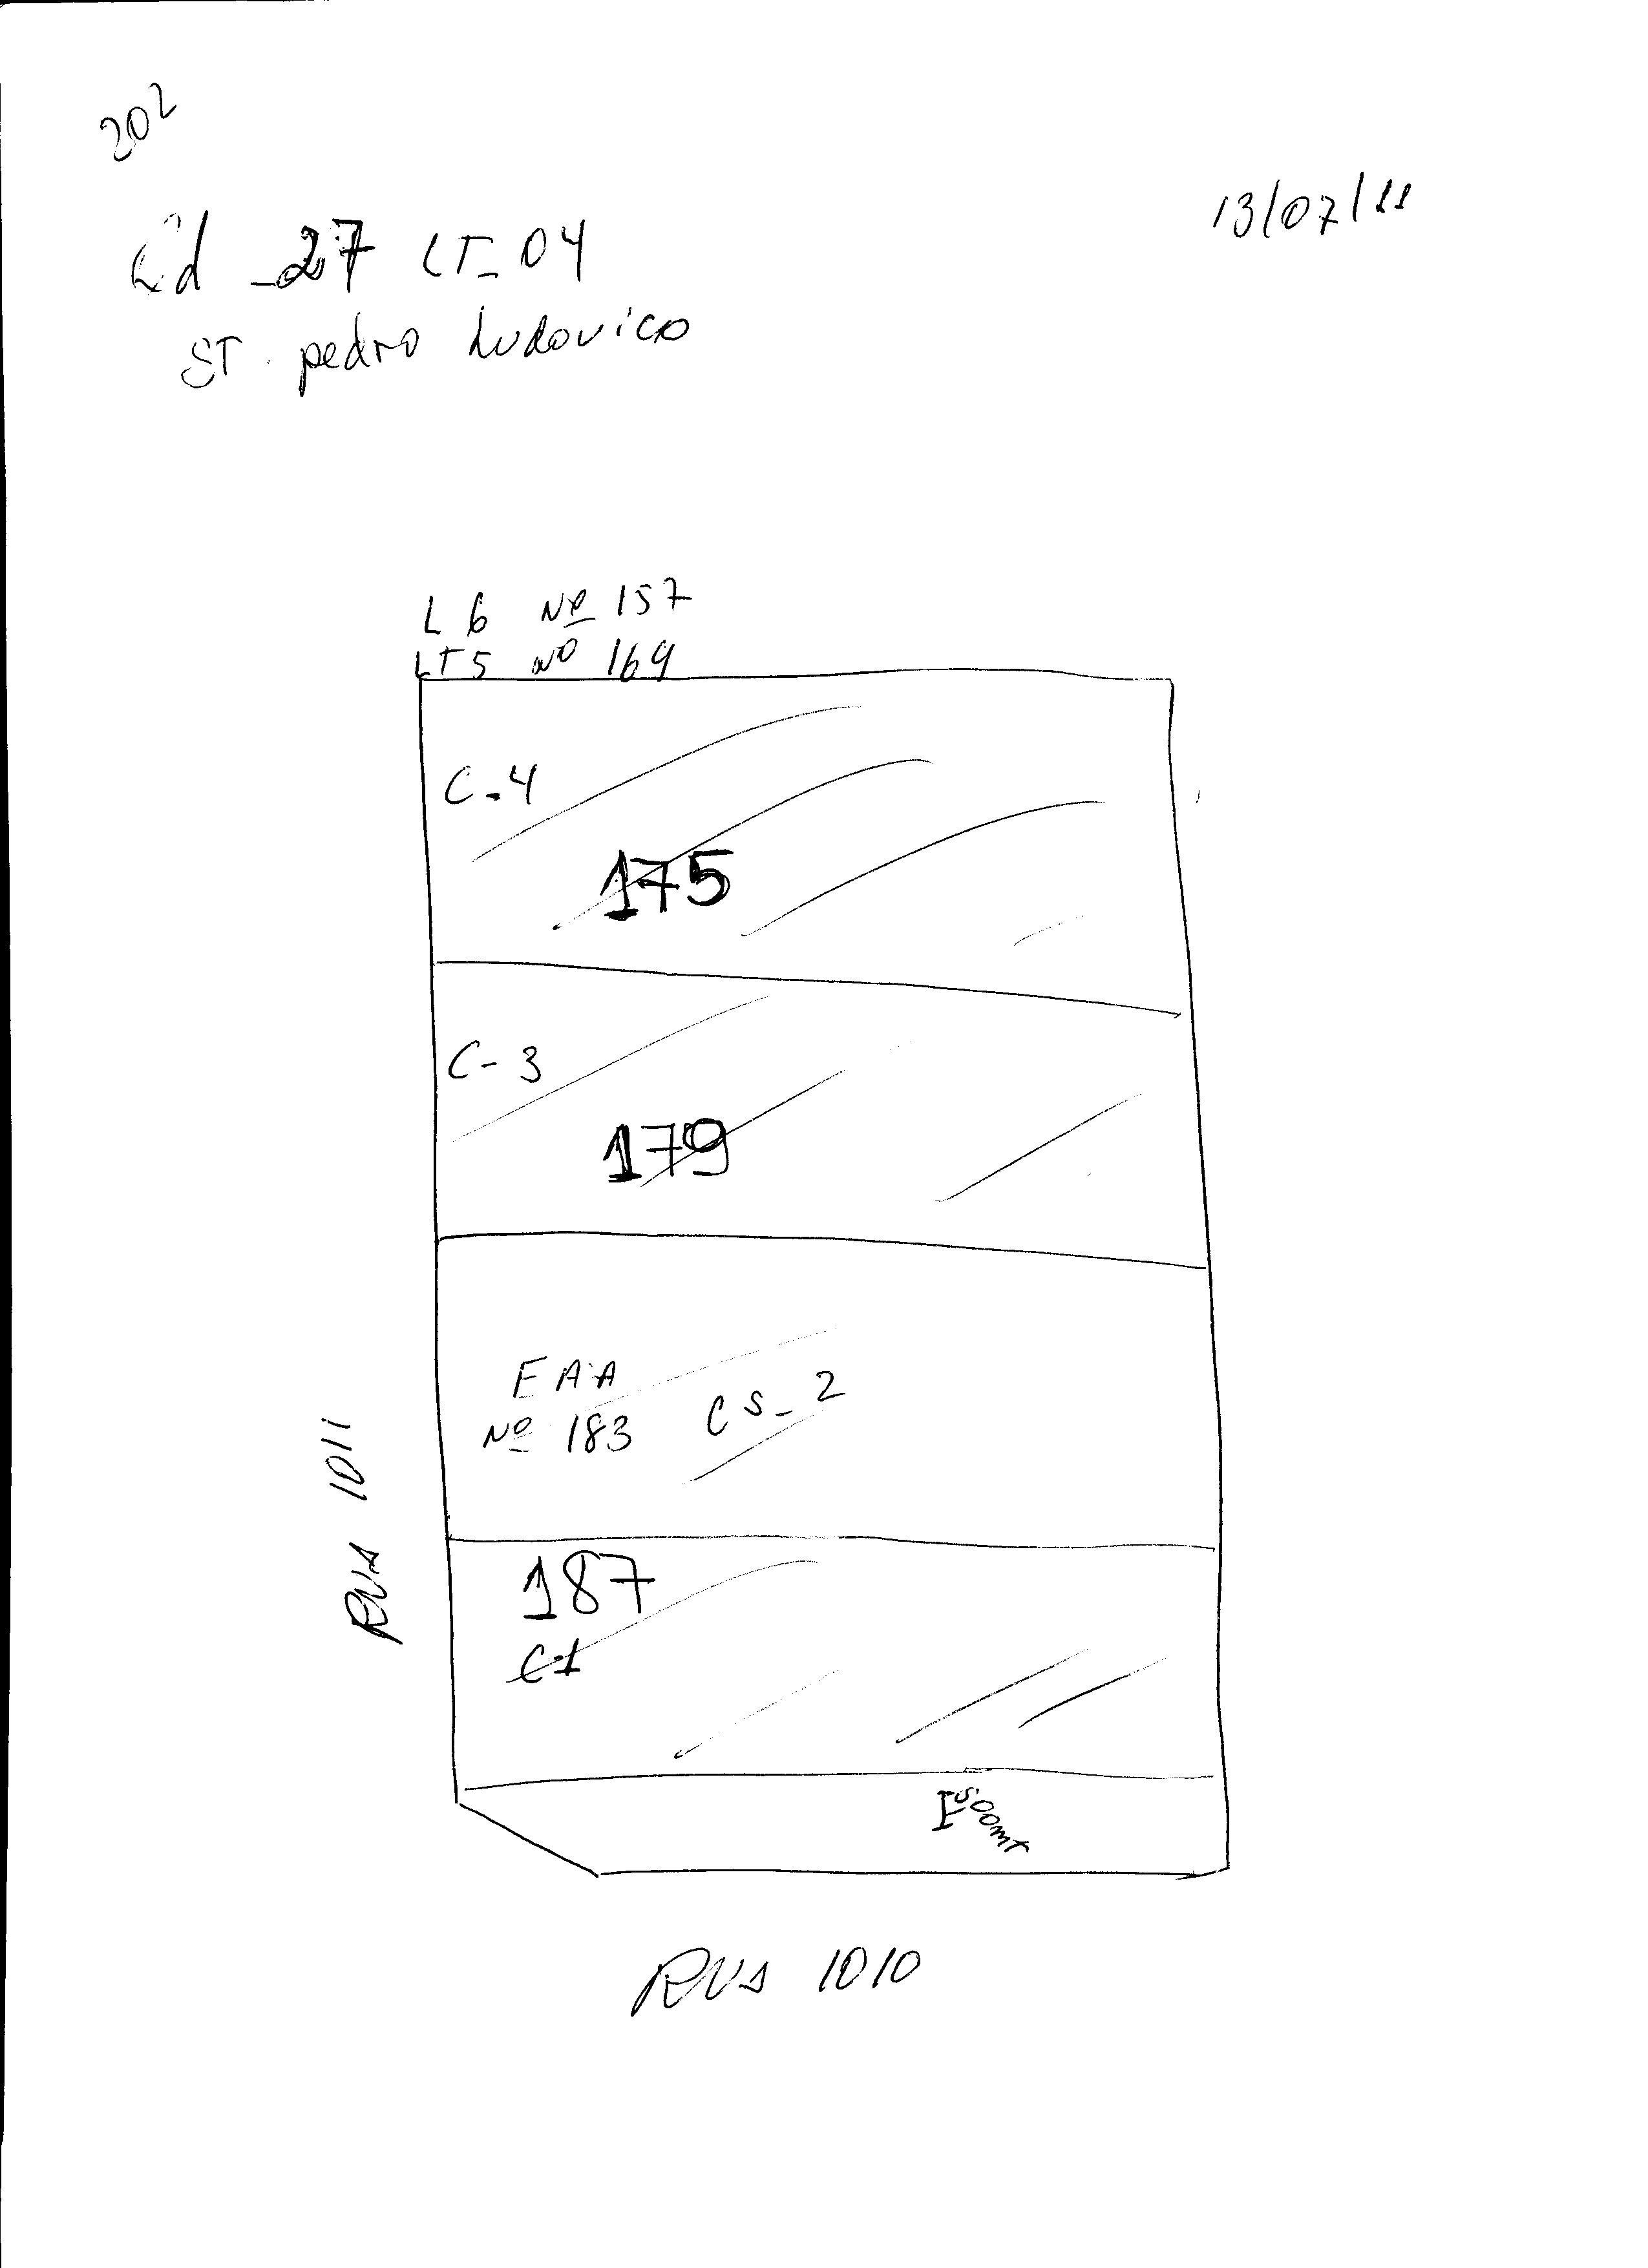 202
13/07/11
Qd _27 LT_04
ST. pedro Ludovico
L 6 Nº 157
LT5 Nº 169
C-4
175
C-3
179
EAA
Nº 183 CS_2
187
C-1
500mt
RUA 1011
RUA 1010